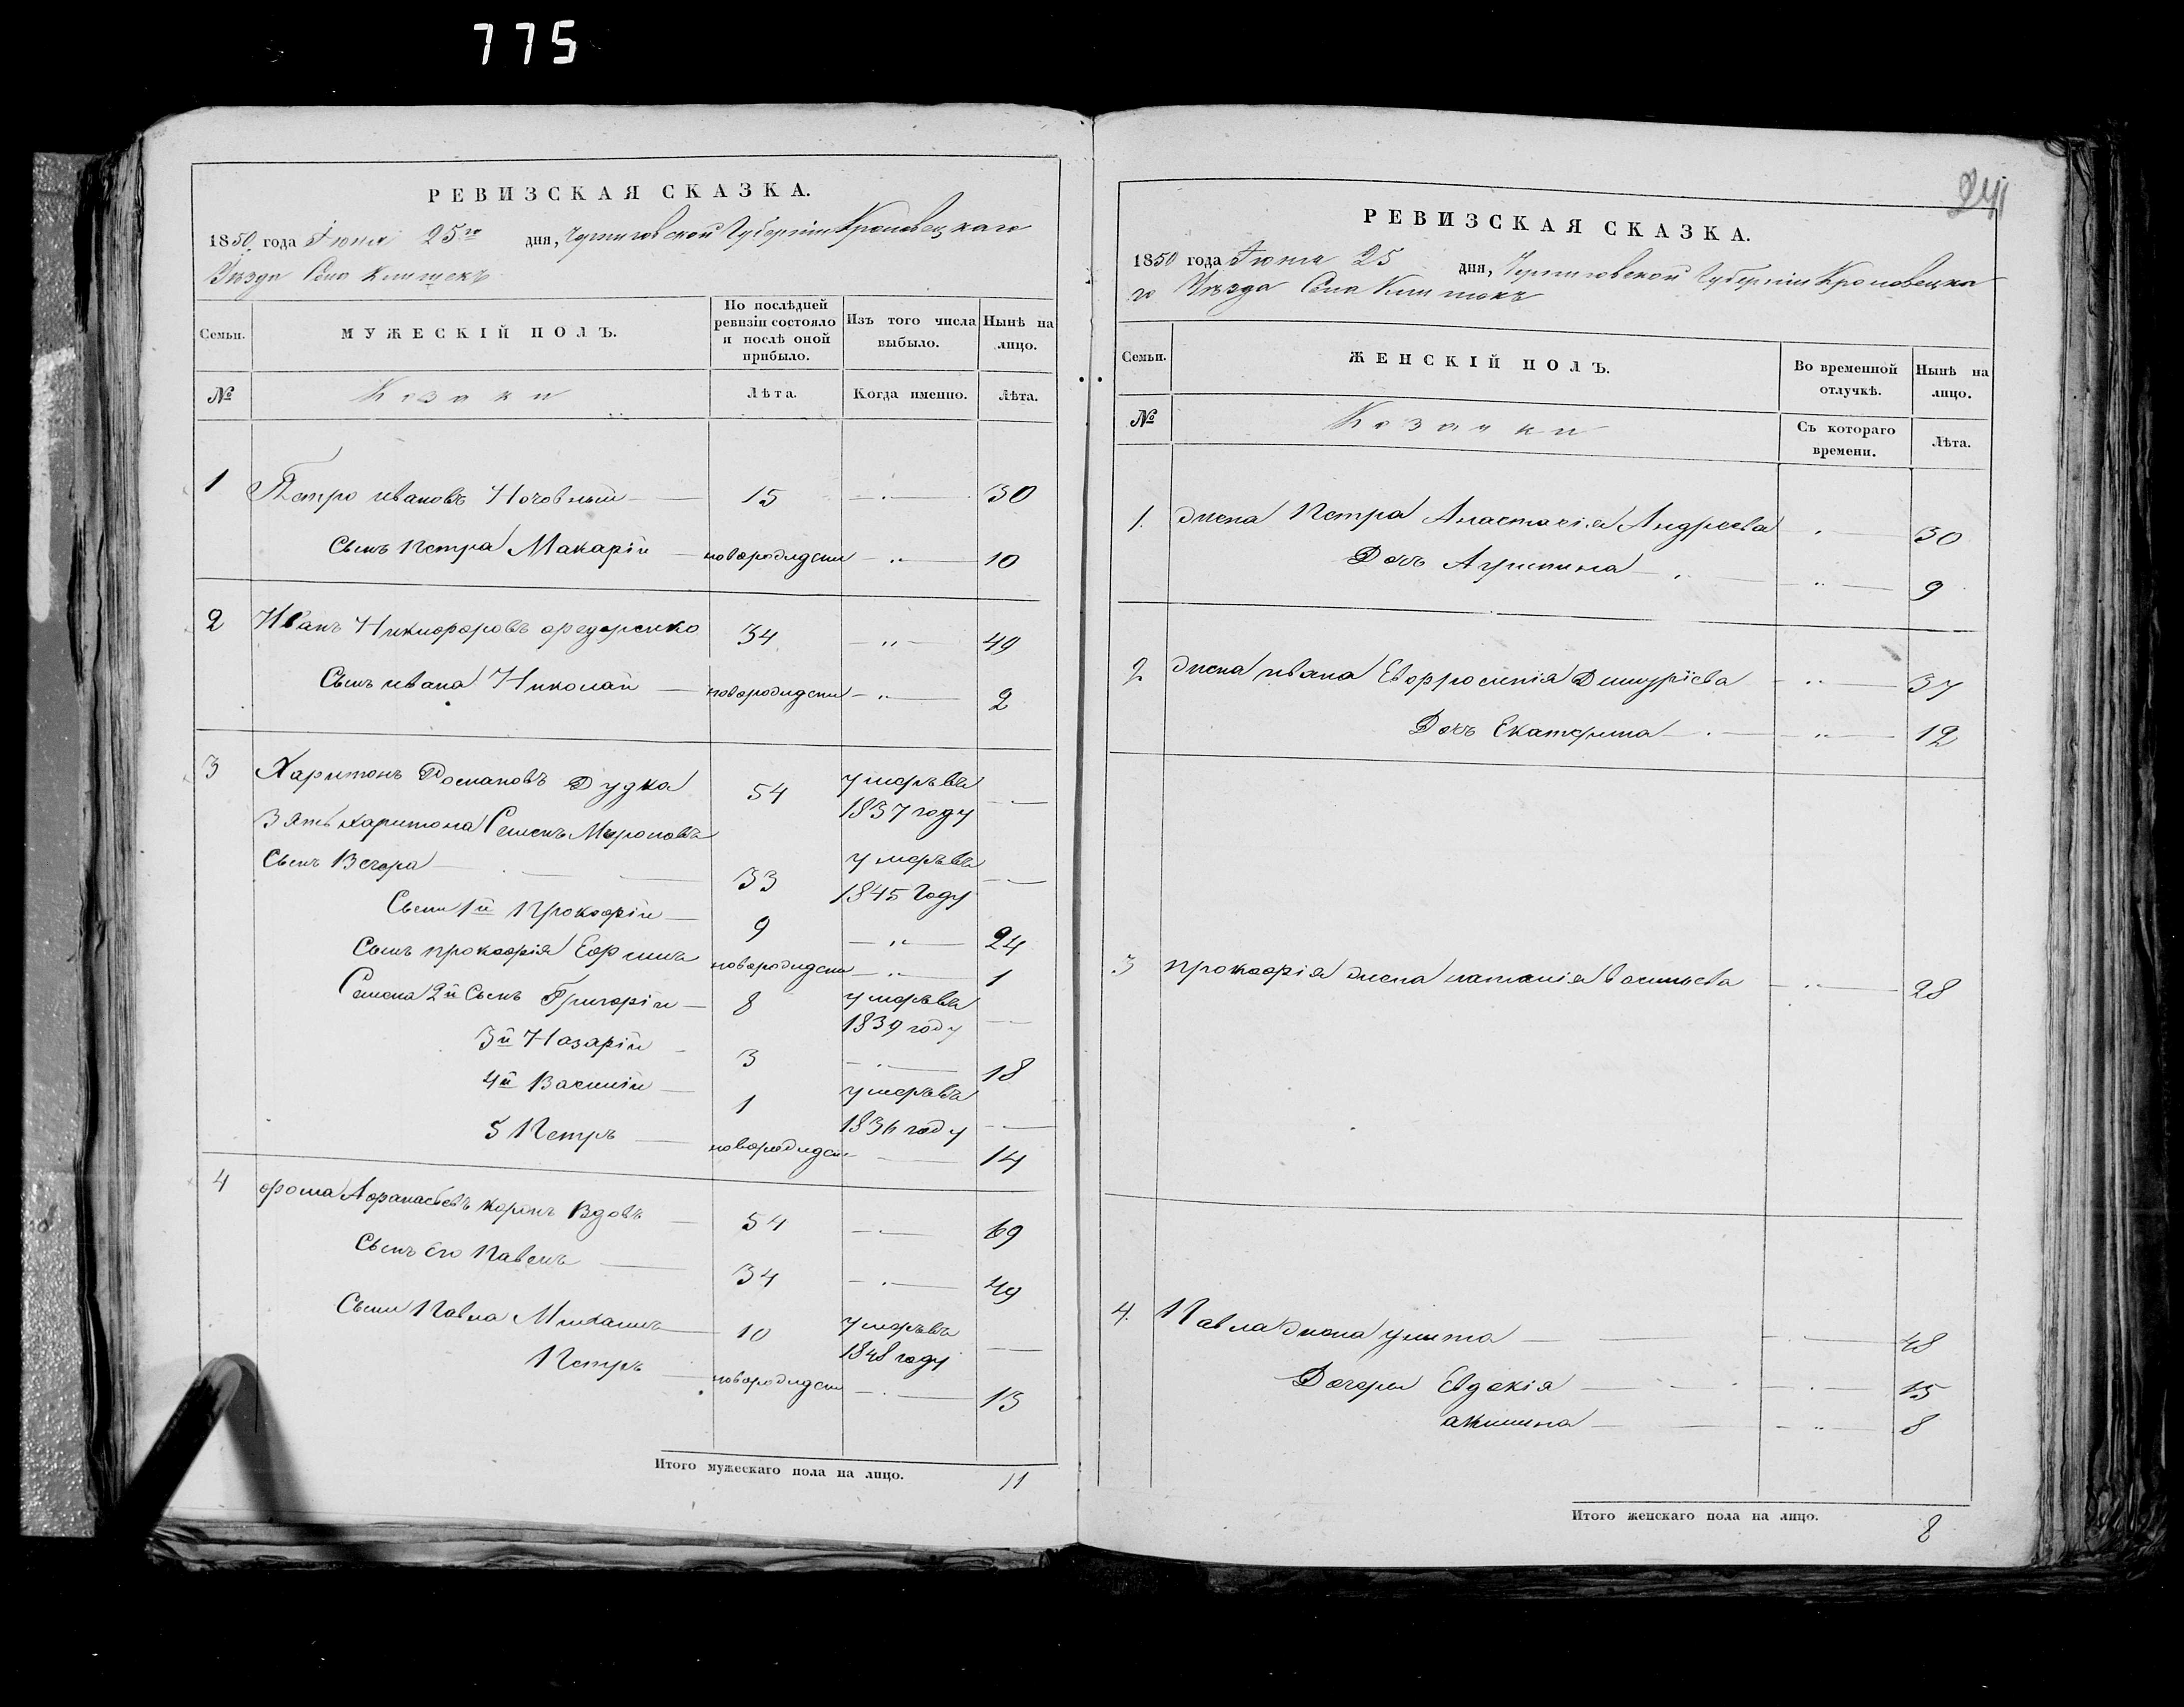 775
РЕВИЗСКАЯ СКАЗКА.
1850 года Іюня 25го дня, Черниговской Губерніи Кроловецкаго
Уѣзда Села Клишекъ
Семьи.
МУЖЕСКІЙ ПОЛЪ.
По послѣдней ревизіи состояло и послѣ оной прибыло.
Изъ того числа выбыло.
Нынѣ на лицо.
№
Козаки
Лѣта.
Когда именно.
Лѣта.
1 Петро ивановъ Ночовный 15 30
Сынъ Петра Макарій новорожденъ 10
2 Иванъ Никифоровъ федоренко 34 49
Сынъ ивана Николай новорожденъ 2
3 Харитонъ Романовъ Дудка 54 умеръ въ 1837 году
Зять харитона Семенъ Мироновъ
Сынъ Вечера 33 умеръ въ 1845 Году
Сыны 1й Прокофій 9 24
Сынъ прокофія Ефимъ новорожденъ 1
Семена 2й Сынъ Григорій 8 умеръ въ 1839 году
3й Назарій 3 18
4й Василій 1 умеръ въ 1836 году
5 Петръ новорожден 14
4 фома Афанасьевъ корень Вдовъ 54 69
Сынъ Его Павелъ 34 49
Сыны Павла Михаилъ 10 умеръ въ 1848 году
Петръ новорожден 13
Итого мужескаго пола на лицо. 11
241
РЕВИЗСКАЯ СКАЗКА.
1850 года Іюня 25 дня, Черниговской Губерніи Кроловецка
го Уѣзда Села Клишекъ
Семьи.
ЖЕНСКІЙ ПОЛЪ.
Во временной отлучкѣ.
Нынѣ на лицо.
№
Козачки
Съ котораго времени.
Лѣта.
1. жена Петра Анастасія Андреева 30
Дочь Агрипина 9
2 жена ивана Евфросинія Дмитріева 37
Дочь Екатерина 12
3 прокофія жена наталія Васильева 28
4. Павла жена улита 48
Дочери Евдокія 15
акилина 8
Итого женскаго пола на лицо. 8